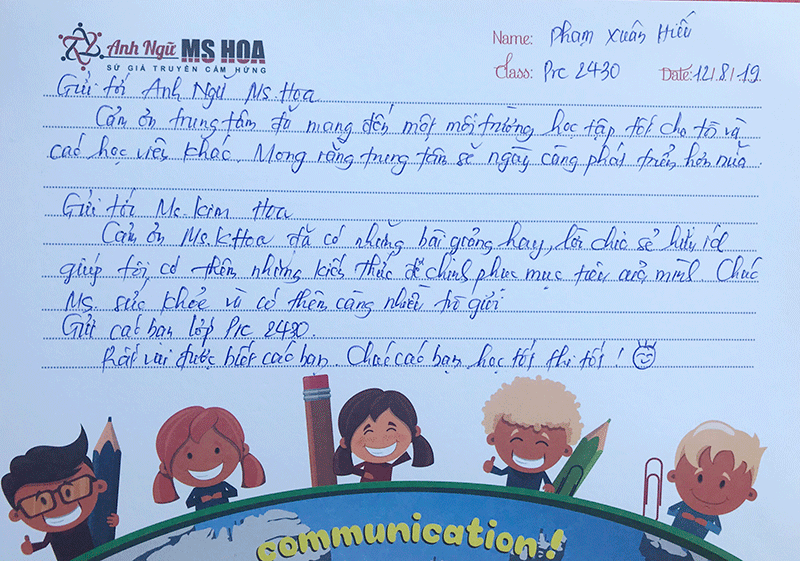 Anh Ngữ MS HOA
SỨ GIẢ TRUYỀN CẢM HỨNG
Name: Phạm Xuân Hiếu
Class: Prc 2430 Date: 12/8/19
Gửi tới Anh Ngữ Ms Hoa
Cảm ơn trung tâm đã mang đến một môi trường học tập tốt cho tôi và
các học viên khác. Mong rằng trung tâm sẽ ngày càng phát triển hơn nữa.
Gửi tới Ms. Kim Hoa
Cảm ơn Ms. K Hoa đã có những bài giảng hay, lời chia sẻ hữu ích
giúp tôi có thêm những kiến thức để chinh phục mục tiêu của mình. Chúc
Ms. sức khỏe và có thêm càng nhiều trò giỏi
Gửi các bạn lớp Prc 2430.
Rất vui được biết các bạn. Chúc các bạn học tốt thi tốt!
communication!